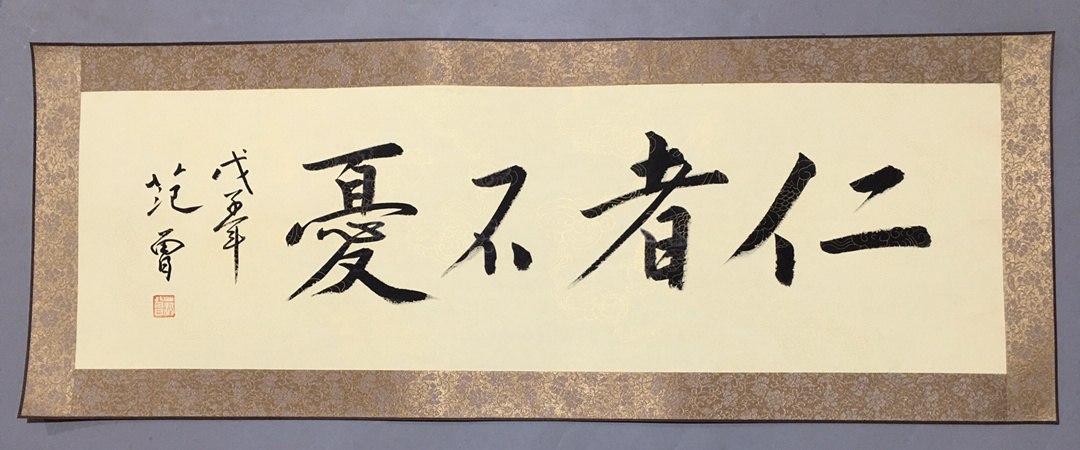 仁者不憂
戊子年
范曾